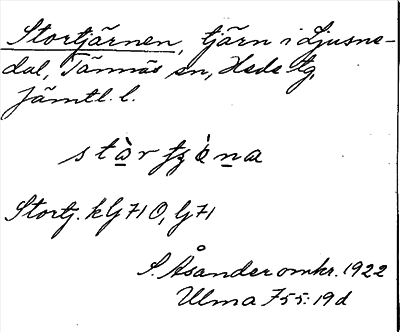 Stortjärnen, tjärn i Ljusne-
dal, Tännäs sn, Hede tg,
Jämtl. l.
Stortj. kbl 71 O, bl 71
S. Åsander omkr. 1922
Ulma 755:19d